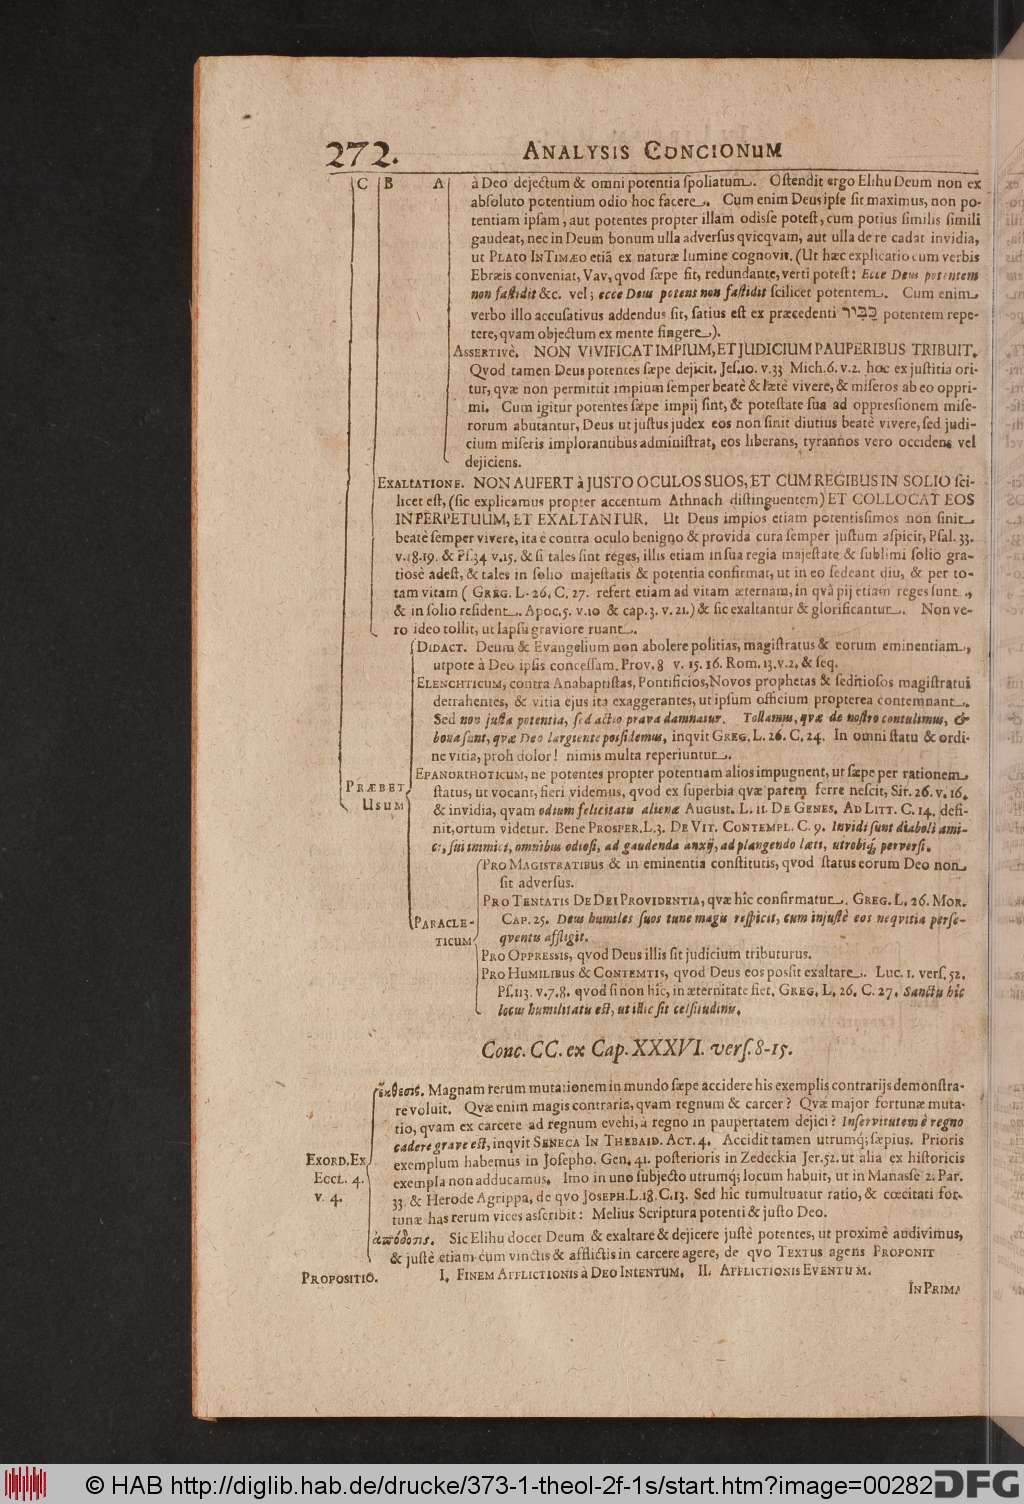 272. ANALYSIS CONCIONUM
C B A à Deo dejectum & omni potentia ſpoliatum. Oſtendit ergo Elihu Deum non ex
abſoluto potentium odio hoc facere. Cum enim Deus ipſe ſit maximus, non po-
tentiam ipſam, aut potentes propter illam odiſſe poteſt, cum potius ſimilis ſimili
gaudeat, nec in Deum bonum ulla adverſus qvicqvam, aut ulla de re cadat invidia,
ut PLATO IN TIMÆO etiã ex naturæ lumine cognovit. (Ut hæc explicatio cum verbis
Ebræis conveniat, Vav, qvod ſæpe fit, redundante, verti poteſt: Ecce Deus potentem
non faſtidit &c. vel; ecce Deus potens non faſtidit ſcilicet potentem. Cum enim
verbo illo accuſativus addendus ſit, ſatius eſt ex præcedenti כַּבִּיר potentem repe-
tere, qvam objectum ex mente fingere).
ASSERTIVè. NON VIVIFICAT IMPIUM, ET JUDICIUM PAUPERIBUS TRIBUIT.
Qvod tamen Deus potentes ſæpe dejicit. Jeſ.10. v.33 Mich.6. v.2. hoc ex juſtitia ori-
tur, qvæ non permittit impium ſemper beatè & lætè vivere, & miſeros ab eo oppri-
mi. Cum igitur potentes ſæpe impij ſint, & poteſtate ſua ad oppreſſionem miſe-
rorum abutantur, Deus ut juſtus judex eos non ſinit diutius beatè vivere, ſed judi-
cium miſeris implorantibus adminiſtrat, eos liberans, tyrannos vero occidens vel
dejiciens.
EXALTATIONE. NON AUFERT à JUSTO OCULOS SUOS, ET CUM REGIBUS IN SOLIO ſci-
licet eſt, (ſic explicamus propter accentum Athnach diſtinguentem) ET COLLOCAT EOS
IN PERPETUUM, ET EXALTANTUR. Ut Deus impios etiam potentiſſimos non ſinit
beatè ſemper vivere, ita è contra oculo benigno & provida cura ſemper juſtum aſpicit, Pſal. 33.
v.18.19. & Pſ.34 v.15. & ſi tales ſint reges, illis etiam in ſua regia majeſtate & ſublimi ſolio gra-
tiosè adeſt, & tales in ſolio majeſtatis & potentia confirmat, ut in eo ſedeant diu, & per to-
tam vitam ( GREG. L. 26. C. 27. refert etiam ad vitam æternam, in qvâ pij etiam reges ſunt,
& in ſolio reſident. Apoc.5. v.10 & cap.3. v.21.) & ſic exaltantur & glorificantur. Non ve-
ro ideo tollit, ut lapſu graviore ruant.
DIDACT. Deum & Evangelium non abolere politias, magiſtratus & eorum eminentiam,
utpote à Deo ipſis conceſſam, Prov. 8 v. 15. 16. Rom. 13. v. 2. & ſeq.
ELENCHTICUM, contra Anabaptiſtas, Pontificios, Novos prophetas & ſeditioſos magiſtratui
detrahentes, & vitia ejus ita exaggerantes, ut ipſum officium propterea contemnant.
Sed non juſta potentia, ſed actio prava damnatur. Tollamus, qvæ de noſtro contulimus, &
bona ſunt, qvæ Deo largiente poſſidemus, inqvit GREG. L. 26. C. 24. In omni ſtatu & ordi-
ne vitia, proh dolor! nimis multa reperiuntur.
PRÆBET USUM
EPANORTHOTICUM, ne potentes propter potentiam alios impugnent, ut ſæpe per rationem
ſtatus, ut vocant, fieri videmus, qvod ex ſuperbia qvæ parem ferre neſcit, Sir. 26. v. 16.
& invidia, qvam odium felicitatis alienæ AUGUST. L. 11. DE GENES. AD LITT. C. 14. defi-
nit, ortum videtur. Bene PROSPER. L.3. DE VIT. CONTEMPL. C. 9. Invidi ſunt diaboli ami-
ci, ſui inimici, omnibus odioſi, ad gaudenda anxij, ad plangendo læti, utrobiq́; perverſi.
PARACLE-
TICUM
PRO MAGISTRATIBUS & in eminentia conſtitutis, qvod ſtatus eorum Deo non
ſit adverſus.
PRO TENTATIS DE DEI PROVIDENTIA, qvæ hîc confirmatur. GREG. L. 26. MOR.
CAP. 25. Deus humiles ſuos tunc magis reſpicit, cum injuſtè eos neqvitia perſe-
qventis affligit.
PRO OPPRESSIS, qvod Deus illis ſit judicium tributurus.
PRO HUMILIBUS & CONTEMTIS, qvod Deus eos poſſit exaltare. Luc. 1. verſ. 52.
Pſ.113. v.7.8. qvod ſi non hîc, in æternitate fiet. GREG. L. 26. C. 27. Sanctis hîc
locus humilitatis eſt, ut illic ſit celſitudinis.
Conc. CC. ex Cap. XXXVI. verſ. 8-15.
EXORD. EX
ECCL. 4.
v. 4.
ἔκθεσις. Magnam rerum mutationem in mundo ſæpe accidere his exemplis contrarijs demonſtra-
re voluit. Qvæ enim magis contraria, qvam regnum & carcer? Qvæ major fortunæ muta-
tio, qvam ex carcere ad regnum evehi, à regno in paupertatem dejici? In ſervitutem è regno
cadere grave eſt, inqvit SENECA IN THEBAID. ACT. 4. Accidit tamen utrumq́; ſæpius. Prioris
exemplum habemus in Joſepho. Gen. 41. poſterioris in Zedeckia Jer.52. ut alia ex hiſtoricis
exempla non adducamus. Imo in uno ſubjecto utrumq́; locum habuit, ut in Manaſſe 2. Par.
33. & Herode Agrippa, de qvo JOSEPH. L.18. C.13. Sed hic tumultuatur ratio, & cœcitati for-
tunæ has rerum vices aſſcribit: Melius Scriptura potenti & juſto Deo.
ἀπόδοσις. Sic Elihu docet Deum & exaltare & dejicere juſtè potentes, ut proximè audivimus,
& juſtè etiam cum vinctis & afflictis in carcere agere, de qvo TEXTUS agens PROPONIT
PROPOSITIO. I. FINEM AFFLICTIONIS à DEO INTENTUM. II. AFFLICTIONIS EVENTUM.
IN PRIMA
© HAB http://diglib.hab.de/drucke/373-1-theol-2f-1s/start.htm?image=00282 DFG